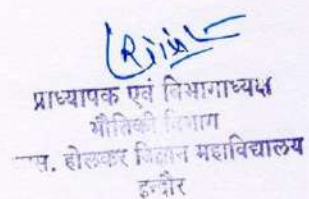 प्राध्यापक एवं विभागाध्यक्ष
भौतिकी विभाग
स. होलकर विज्ञान महाविद्यालय
इन्दौर